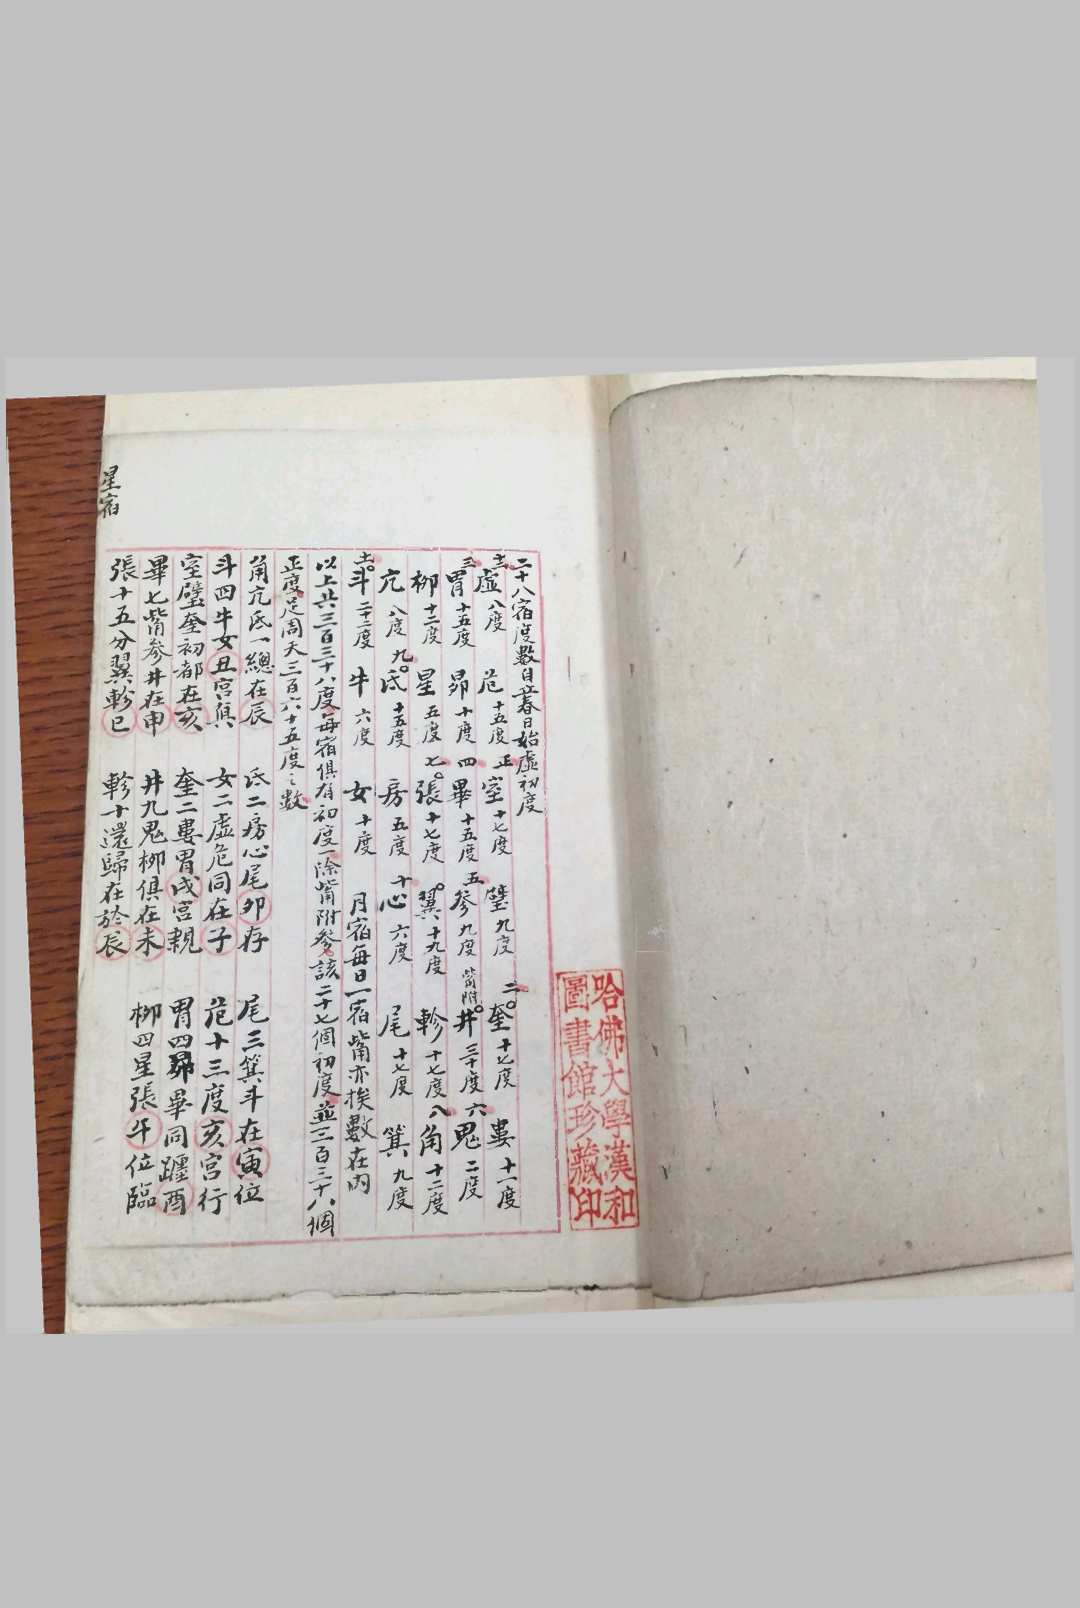 二十八宿度數自立春日始虛初度
十二虛八度 危十五度 正室十七度 壁九度 二奎十七度 婁十一度
三胃十五度 昴十度 四畢十五度 五參九度 觜附 井三十度 六鬼二度
柳十三度 星五度 七張十七度 翼十九度 軫十七度 八角十二度
亢八度 九氐十五度 房五度 十心六度 尾十七度 箕九度
十一斗二十二度 牛六度 女十度 月宿每日一宿觜亦挨數在內
以上共三百三十八度每宿俱有初度一除觜附參該二十七個初度並三百三十八個
正度足周天三百六十五度之數
角亢氐一總在辰 氐二房心尾卯存 尾三箕斗在寅位
斗四牛女丑宮真 女二虛危同在子 危十三度亥宮行
室璧奎初都在亥 奎二婁胃戌宮親 胃四昴畢同躔酉
畢七觜參井在申 井九鬼柳俱在未 柳四星張午位臨
張十五分翼軫巳 軫十還歸在於辰
星宿
哈佛大學漢和
圖書館珍藏印